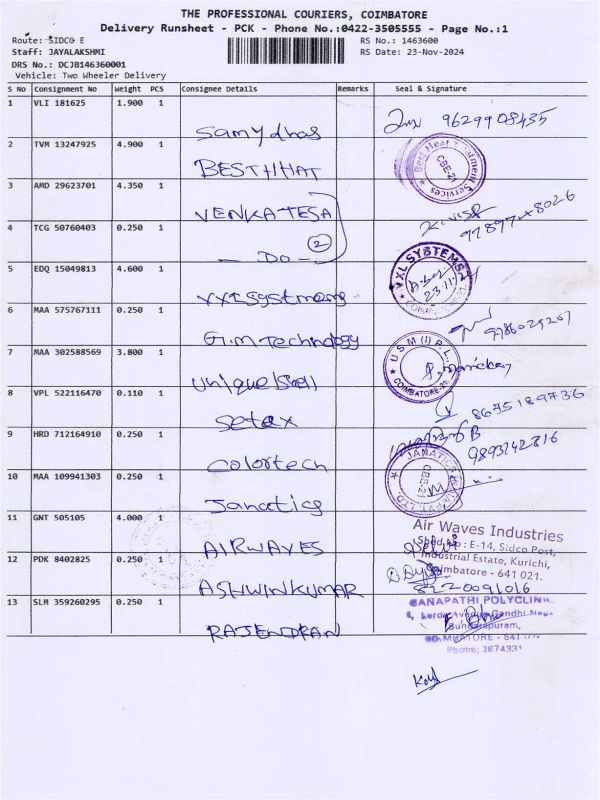 THE PROFESSIONAL COURIERS, COIMBATORE
Delivery Runsheet - PCK - Phone No.:0422-3505555 - Page No.:1
Route: SIDCO E
RS No.: 1463600
Staff: JAYALAKSHMI
RS Date: 23-Nov-2024
DRS No.: DCJB146360001
Vehicle: Two Wheeler Delivery
S No Consignment No Weight PCS Consignee Details Remarks Seal & Signature
1 VLI 181625 1.900 1
Samydhas 9629908435
2 TVM 13247925 4.900 1
BESTHHAT
Best Heat Treatment Services CBE-21
3 AMD 29623701 4.350 1
VENKATESA
4 TCG 50760403 0.250 1
2
- DO -
5 EDQ 15049813 4.600 1
VXL SYSTEMS 23.11
COIMBATORE
6 MAA 575767111 0.250 1
G.M Technology 9786029207
7 MAA 302588569 3.800 1
USM (I) P.L.
COIMBATORE-21
unique shell
8 VPL 522116470 0.110 1
setax 8675189736
9 HRD 712164910 0.250 1
colortech
10 MAA 109941303 0.250 1
JANATICS
CBE-21
Janatics
11 GNT 505105 4.000 1
AIRWAVES
Air Waves Industries
Shed No : E-14, Sidco Post,
Industrial Estate, Kurichi,
Coimbatore - 641 021.
12 PDK 8402825 0.250 1
ASHWINKUMAR 8220091016
13 SLM 359260295 0.250 1
RAJENDRAN
GANAPATHI POLYCLINIC
Gandhi Nagar
Sundarapuram,
COIMBATORE - 641